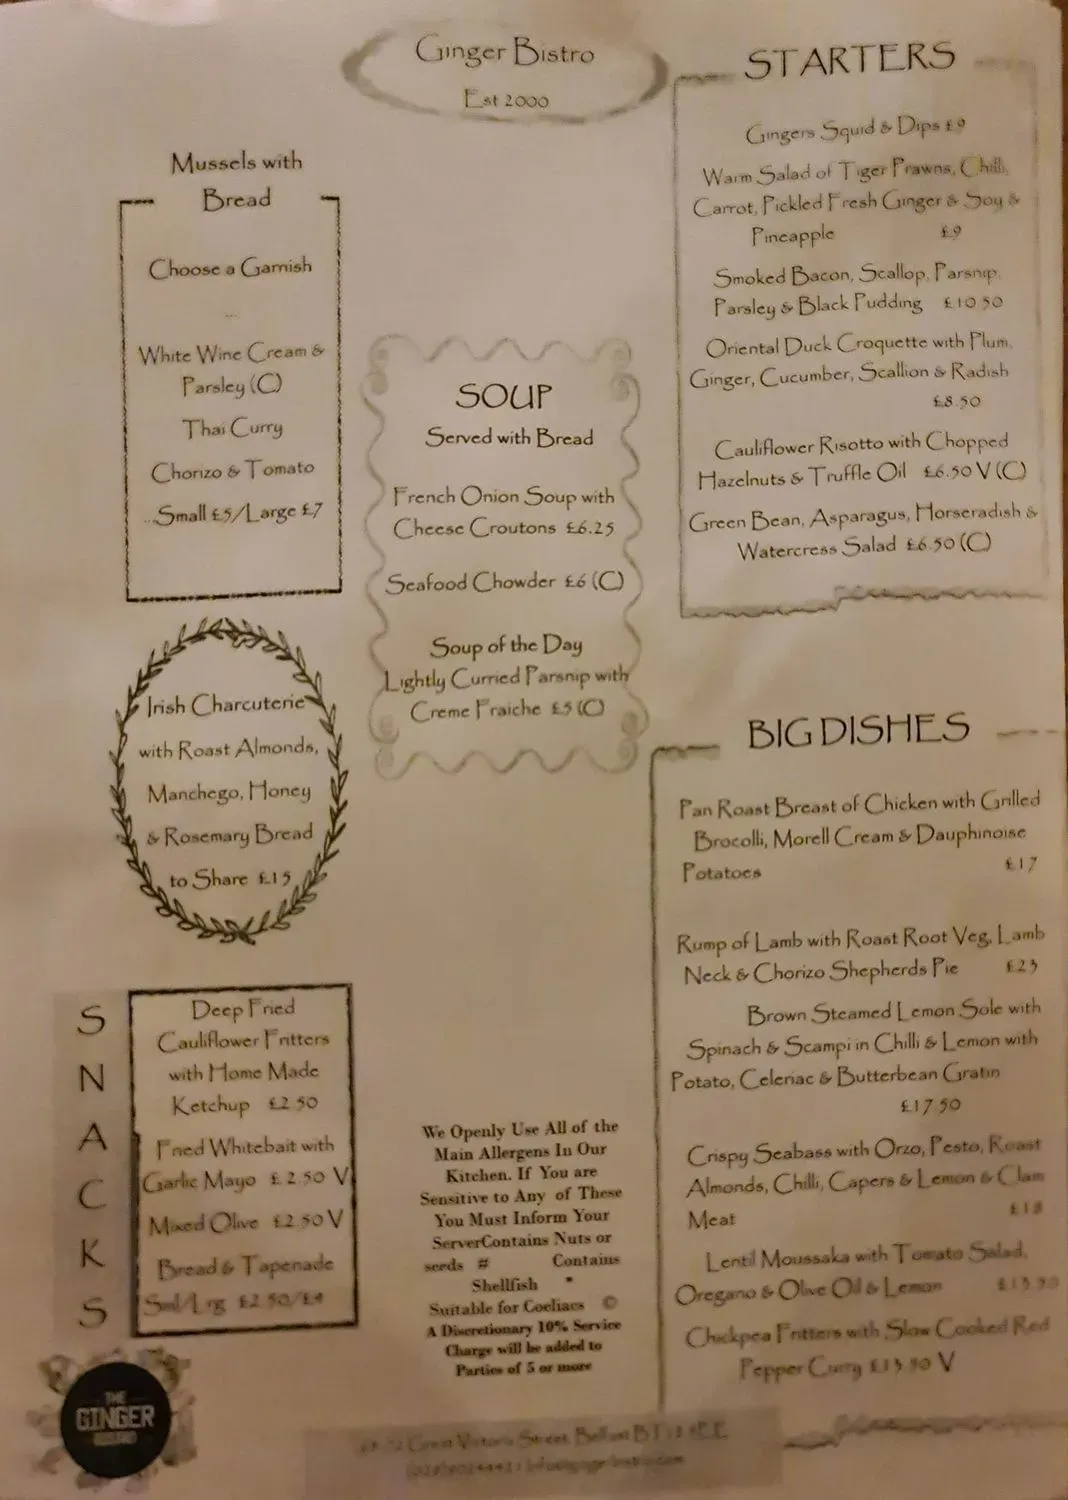 Ginger Bistro
Est 2000
Mussels with
Bread
Choose a Garnish
...
White Wine Cream &
Parsley (C)
Thai Curry
Chorizo & Tomato
...Small £5/Large £7
Irish Charcuterie
with Roast Almonds,
Manchego, Honey
& Rosemary Bread
to Share £15
SNACKS
Deep Fried
Cauliflower Fritters
with Home Made
Ketchup £2.50
Fried Whitebait with
Garlic Mayo £2.50 V
Mixed Olive £2.50 V
Bread & Tapenade
Sml/Lrg £2.50/£4
THE
GINGER
BISTRO
SOUP
Served with Bread
French Onion Soup with
Cheese Croutons £6.25
Seafood Chowder £6 (C)
Soup of the Day
Lightly Curried Parsnip with
Creme Fraiche £5 (C)
We Openly Use All of the
Main Allergens In Our
Kitchen. If You are
Sensitive to Any of These
You Must Inform Your
ServerContains Nuts or
seeds # Contains
Shellfish *
Suitable for Coeliacs ©
A Discretionary 10% Service
Charge will be added to
Parties of 5 or more
STARTERS
Gingers Squid & Dips £9
Warm Salad of Tiger Prawns, Chilli,
Carrot, Pickled Fresh Ginger & Soy &
Pineapple £9
Smoked Bacon, Scallop, Parsnip,
Parsley & Black Pudding £10.50
Oriental Duck Croquette with Plum,
Ginger, Cucumber, Scallion & Radish
£8.50
Cauliflower Risotto with Chopped
Hazelnuts & Truffle Oil £6.50 V (C)
Green Bean, Asparagus, Horseradish &
Watercress Salad £6.50 (C)
BIG DISHES
Pan Roast Breast of Chicken with Grilled
Brocolli, Morell Cream & Dauphinoise
Potatoes £17
Rump of Lamb with Roast Root Veg, Lamb
Neck & Chorizo Shepherds Pie £23
Brown Steamed Lemon Sole with
Spinach & Scampi in Chilli & Lemon with
Potato, Celeriac & Butterbean Gratin
£17.50
Crispy Seabass with Orzo, Pesto, Roast
Almonds, Chilli, Capers & Lemon & Clam
Meat £18
Lentil Moussaka with Tomato Salad,
Oregano & Olive Oil & Lemon £13.50
Chickpea Fritters with Slow Cooked Red
Pepper Curry £13.50 V
Great Victoria Street, Belfast